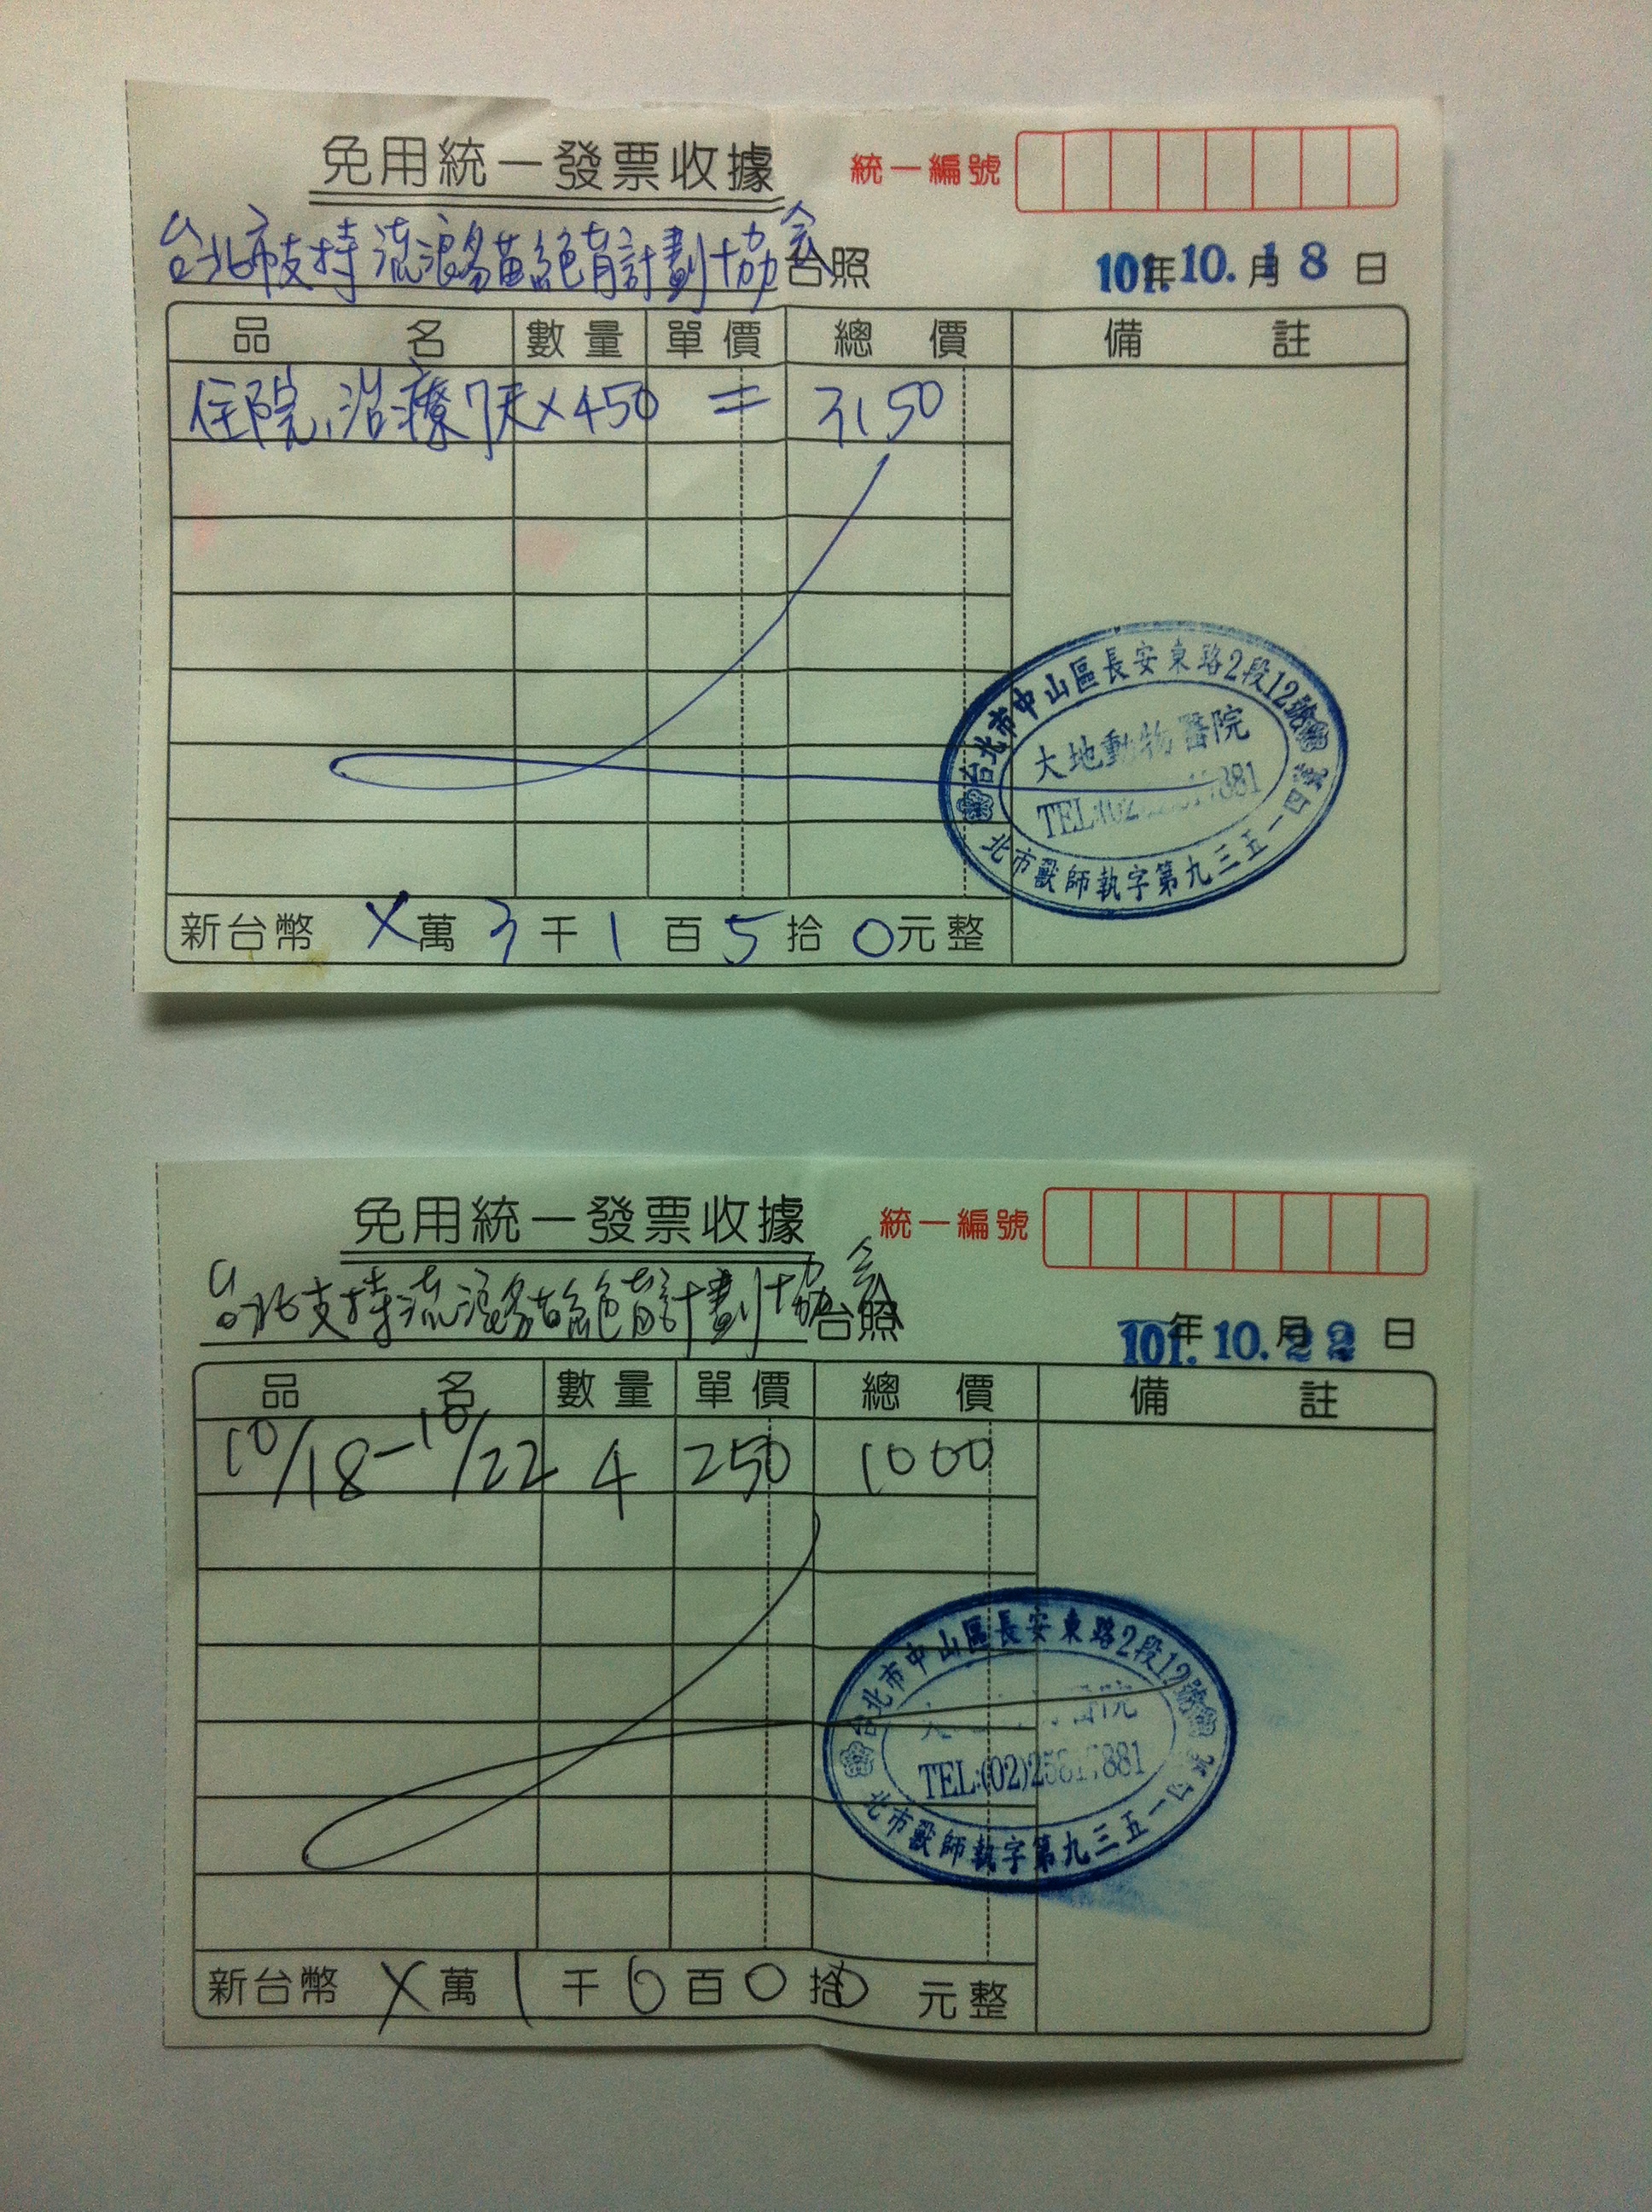 免用統一發票收據 統一編號
台北市支持流浪貓絕育計劃協會台照 101年10.月18日
品名 數量 單價 總價 備註
住院、治療7天×450 = 3150
台北市中山區長安東路2段12號
大地動物醫院
TEL:(02) 881
北市獸師執字第九三五一四號
新台幣 X萬3千1百5拾0元整
免用統一發票收據 統一編號
台北支持流浪貓絕育計劃協會台照 101.年10.月22日
品名 數量 單價 總價 備註
10/18-10/22 4 250 1000
台北市中山區長安東路2段12號
醫院
TEL:(02)2581 881
北市獸師執字第九三五一四號
新台幣 X萬1千0百0拾0元整